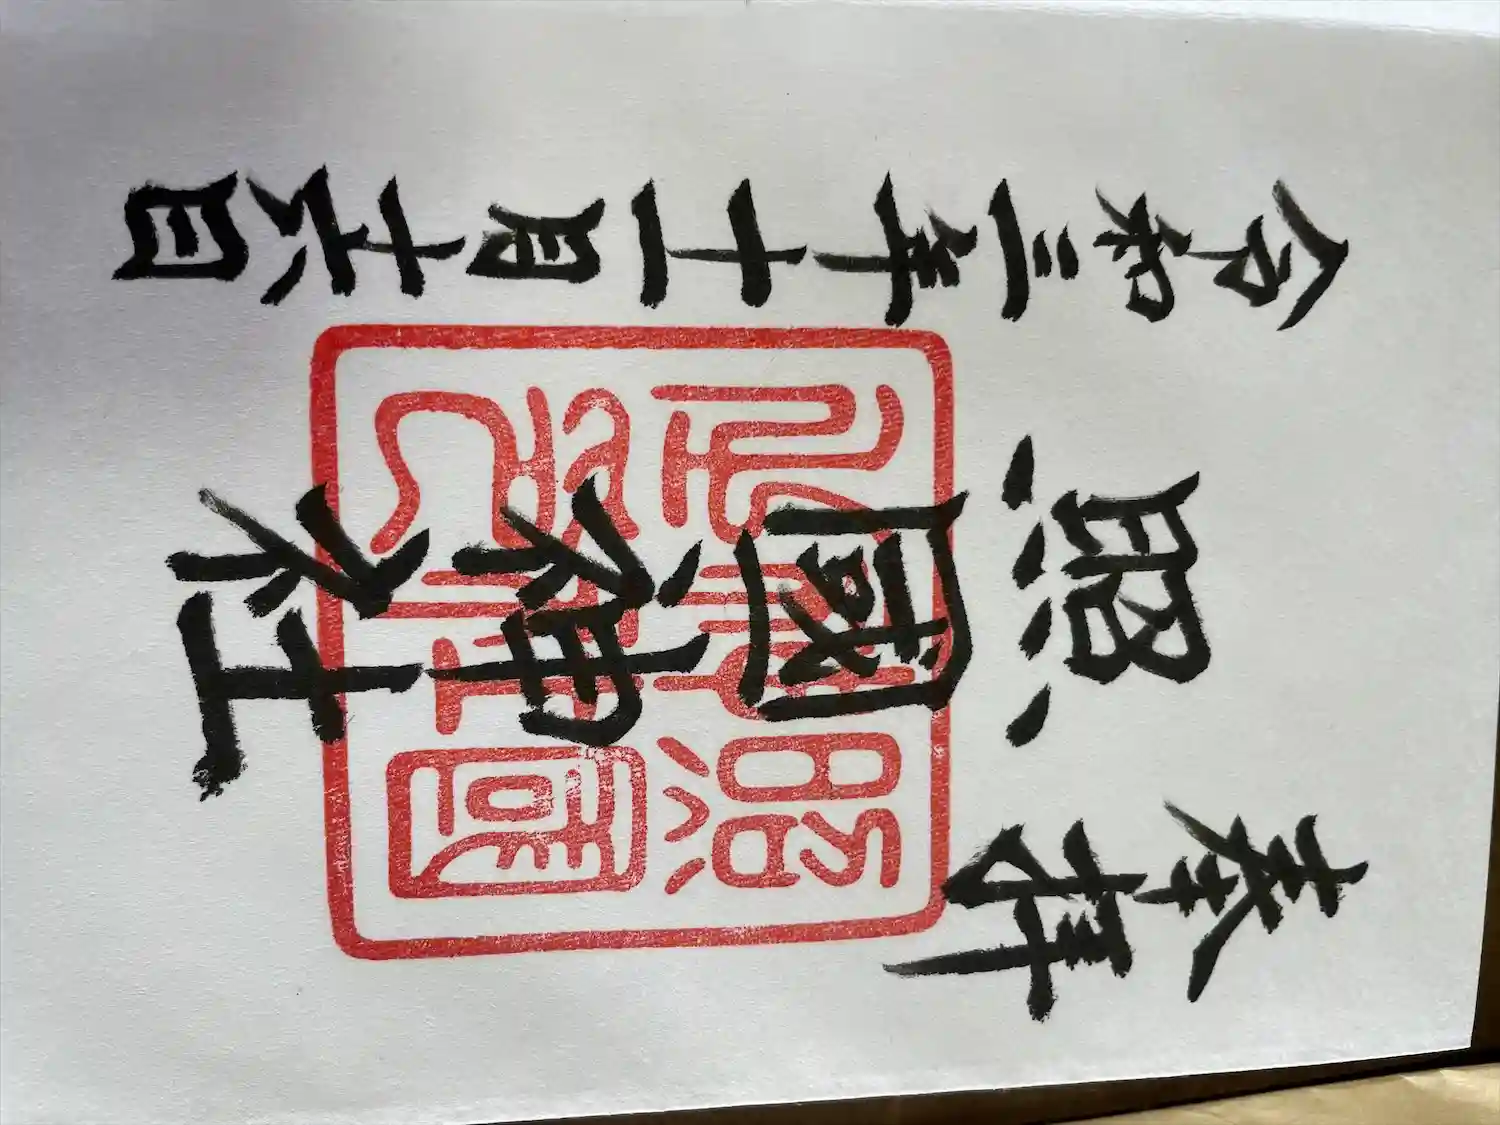 奉拝
照國神社
令和三年十一月十六日
照國